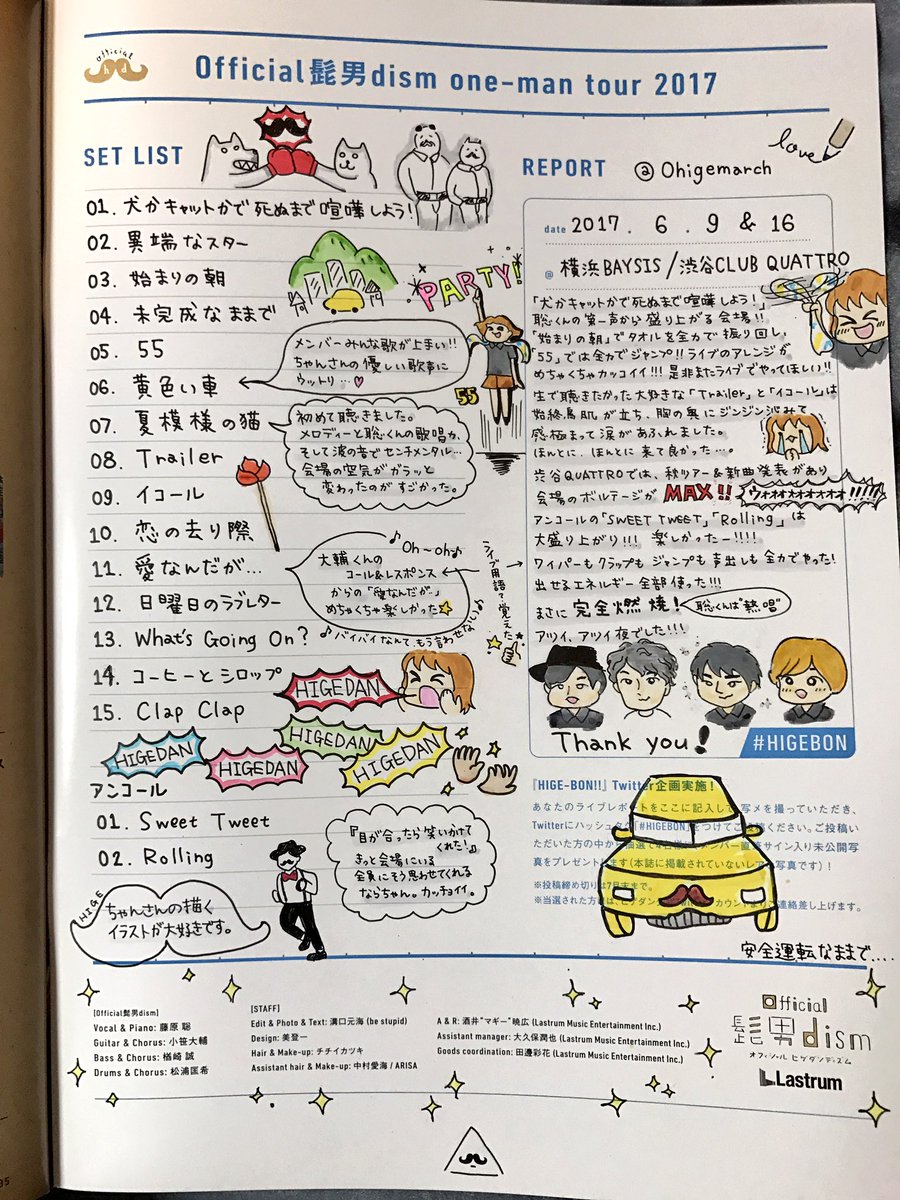 official
hd
Official髭男dism one-man tour 2017
SET LIST
01. 犬かキャットかで死ぬまで喧嘩しよう!
02. 異端なスター
03. 始まりの朝
04. 未完成なままで
05. 55
06. 黄色い車
07. 夏模様の猫
08. Trailer
09. イコール
10. 恋の去り際
11. 愛なんだが…
12. 日曜日のラブレター
13. What's Going On?
14. コーヒーとシロップ
15. Clap Clap
アンコール
01. Sweet Tweet
02. Rolling
PARTY!
55
メンバーみんな歌が上まい!!
ちゃんさんの優しい歌声に
ウットリ…♡
初めて聴きました。
メロディーと聡くんの歌唱力、
そして波の音でセンチメンタル…
会場の空気がガラッと
変わったのがすごかった。
Oh~oh♪
大輔くんの
コール&レスポンス
からの「愛なんだが…」
めちゃくちゃ楽しかった
♪バイバイなんて、もう言わせない♪
ライブ用語?覚えた
HIGEDAN
HIGEDAN
HIGEDAN
HIGEDAN
HIGEDAN
『目が合ったら笑いかけて
くれた!』
きっと会場にいる
全員にそう思わせてくれる
ならちゃん。カッチョイイ。
HIGE
ちゃんさんの描く
イラストが大好きです。
love
REPORT @Ohigemarch
date 2017. 6. 9 & 16
@ 横浜BAYSIS/渋谷CLUB QUATTRO
「犬かキャットかで死ぬまで喧嘩しよう!」
聡くんの第一声から盛り上がる会場!!
「始まりの朝」でタオルを全力で振り回し、
「55」では全力でジャンプ!!ライブのアレンジが
めちゃくちゃカッコイイ!!!是非またライブでやってほしい!!
生で聴きたかった大好きな「Trailer」と「イコール」は
始終鳥肌が立ち、胸の奥にジンジン沁みて
感極まって涙があふれました。
ほんとに、ほんとに来て良かった…。
渋谷QUATTROでは、秋ツアー&新曲発表があり
会場のボルテージがMAX!!
ウォオオオオオオオ!!!!!
アンコールの「SWEET TWEET」「Rolling」は
大盛り上がり!!! 楽しかったー!!!!
ワイパーもクラップもジャンプも声出しも全力でやった!
出せるエネルギー全部使った!!!
まさに完全燃焼! 聡くんは"熱唱"
アツイ、アツイ夜でした!!!
Thank you!
#HIGEBON
『HIGE-BON!!』Twitter企画実施!
あなたのライブレポートをここに記入して、写メを撮っていただき、
Twitterにハッシュタグ「#HIGEBON」をつけてご投稿ください。ご投稿い
ただいた方の中から抽選で4名様にメンバー直筆サイン入り未公開写
真をプレゼントします(本誌に掲載されていないレア写真です)!
※投稿締め切りは7月末まで。
※当選された方には、ヒゲダン アカウントよりご連絡差し上げます。
安全運転なままで….
[Official髭男dism]
Vocal & Piano: 藤原 聡
Guitar & Chorus: 小笹大輔
Bass & Chorus: 楢﨑 誠
Drums & Chorus: 松浦匡希
[STAFF]
Edit & Photo & Text: 溝口元海 (be stupid)
Design: 美登一
Hair & Make-up: チチイカツキ
Assistant hair & Make-up: 中村愛海 / ARISA
A & R: 酒井"マギー"暁広 (Lastrum Music Entertainment Inc.)
Assistant manager: 大久保潤也 (Lastrum Music Entertainment Inc.)
Goods coordination: 田邊彩花 (Lastrum Music Entertainment Inc.)
Official
髭男dism
オフィシャル ヒゲダンディズム
Lastrum